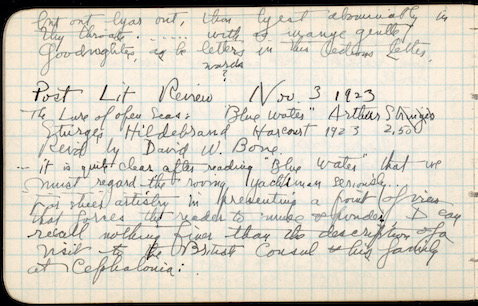 out out lyar out, thou lyest abominably in
thy throat . . . . . . with as many gentle
Goodnights, as be letters in this tedious letter.
words
?
Post Lit Review Nov 3 1923
The Lure of open Seas: "Blue Water" Arthur Sturgis
Sturges Hildebrand Harcourt 1923 2.50
Revd by David W. Bone.
... it is quite clear after reading "Blue Water" that we
must regard the roving yachtsman seriously.
For sheer artistry in presenting a point of view
that forces the reader to muse & ponder, I can
recall nothing finer than the description of a
visit to the British Consul & his family
at Cephalonia: